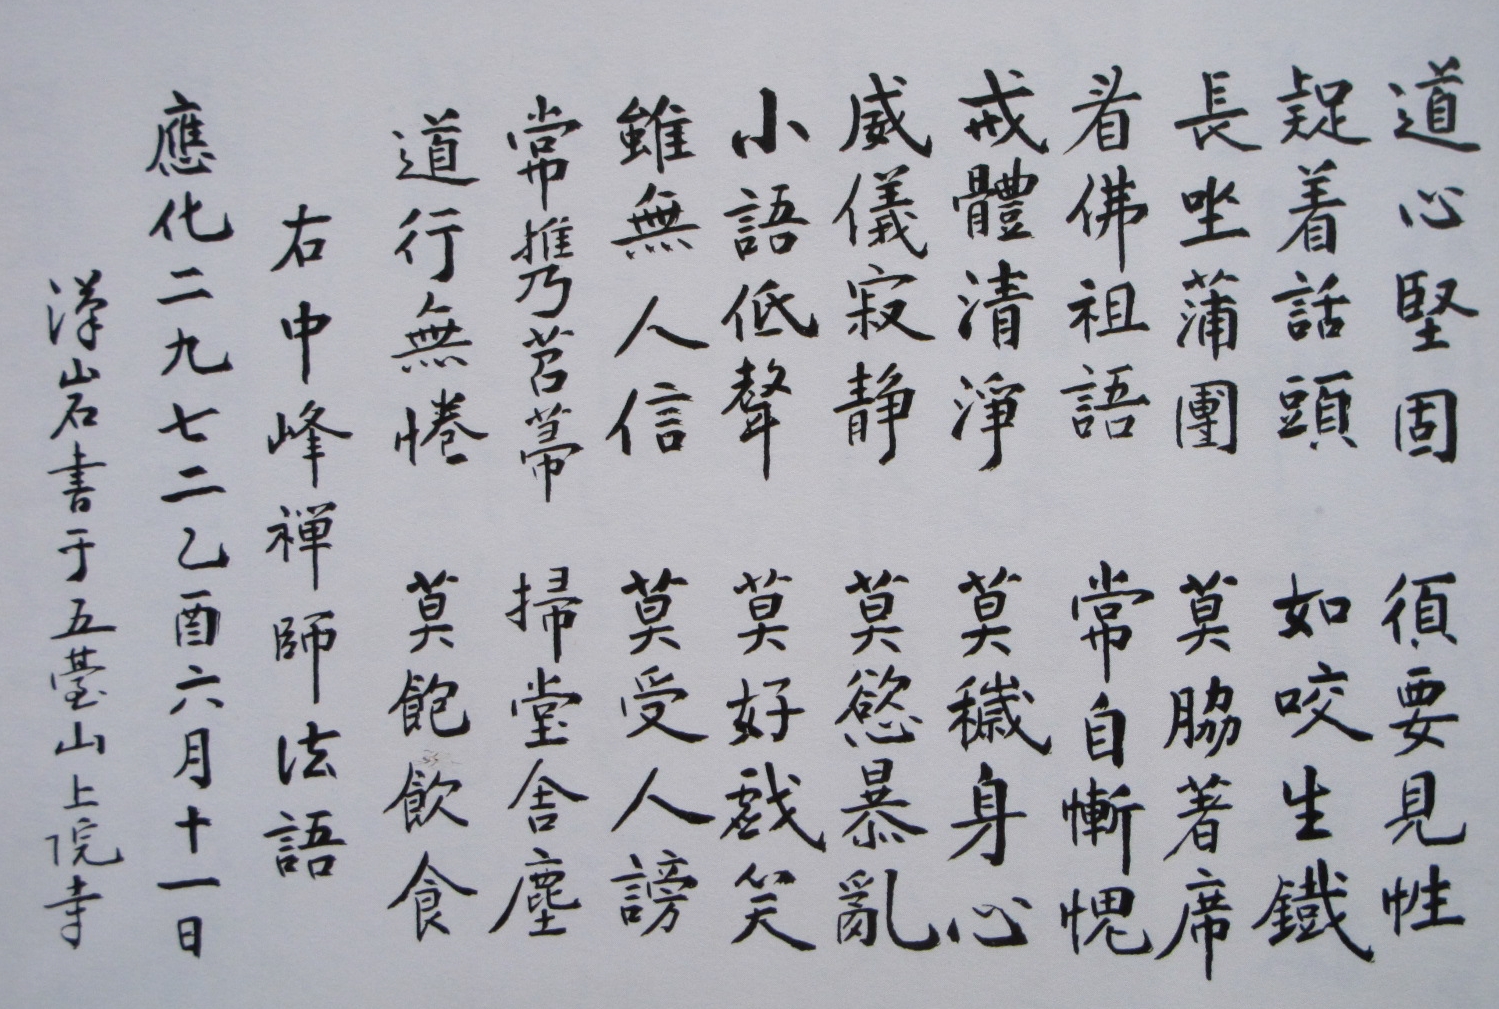 道心堅固 須要見性
疑着話頭 如咬生鐵
長坐蒲團 莫脇著席
看佛祖語 常自慚愧
戒體清淨 莫穢身心
威儀寂静 莫慾暴亂
小語低聲 莫好戱笑
雖無人信 莫受人謗
常携苕菷 掃堂舎塵
道行無惓 莫飽飲食
右中峰禅師法語
應化二九七二乙酉六月十一日
漢岩書于五臺山上院寺